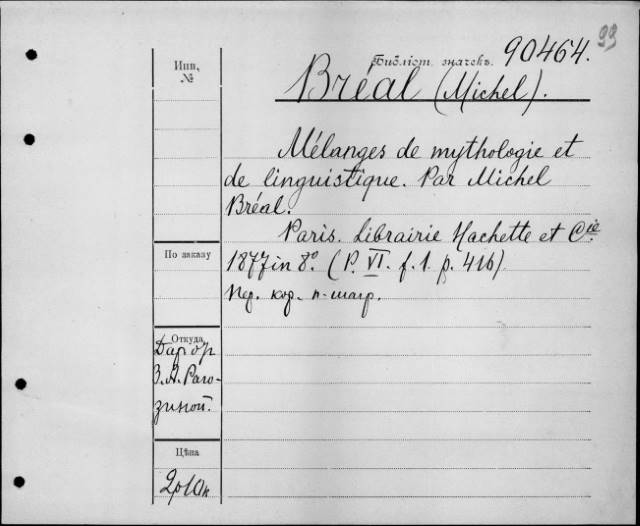 99
Инв. №
Библіот. значекъ. 90464.
Bréal (Michel).
Mélanges de mythologie et
de linguistique. Par Michel
Bréal.
Paris. Librairie Hachette et Cie.
По заказу
1877 in 8º. (P. VI. f. 1. p. 416)
Пер. кор.
Откуда
Даръ отъ
З. А. Раго-
зиной.
Цѣна
2р 10к